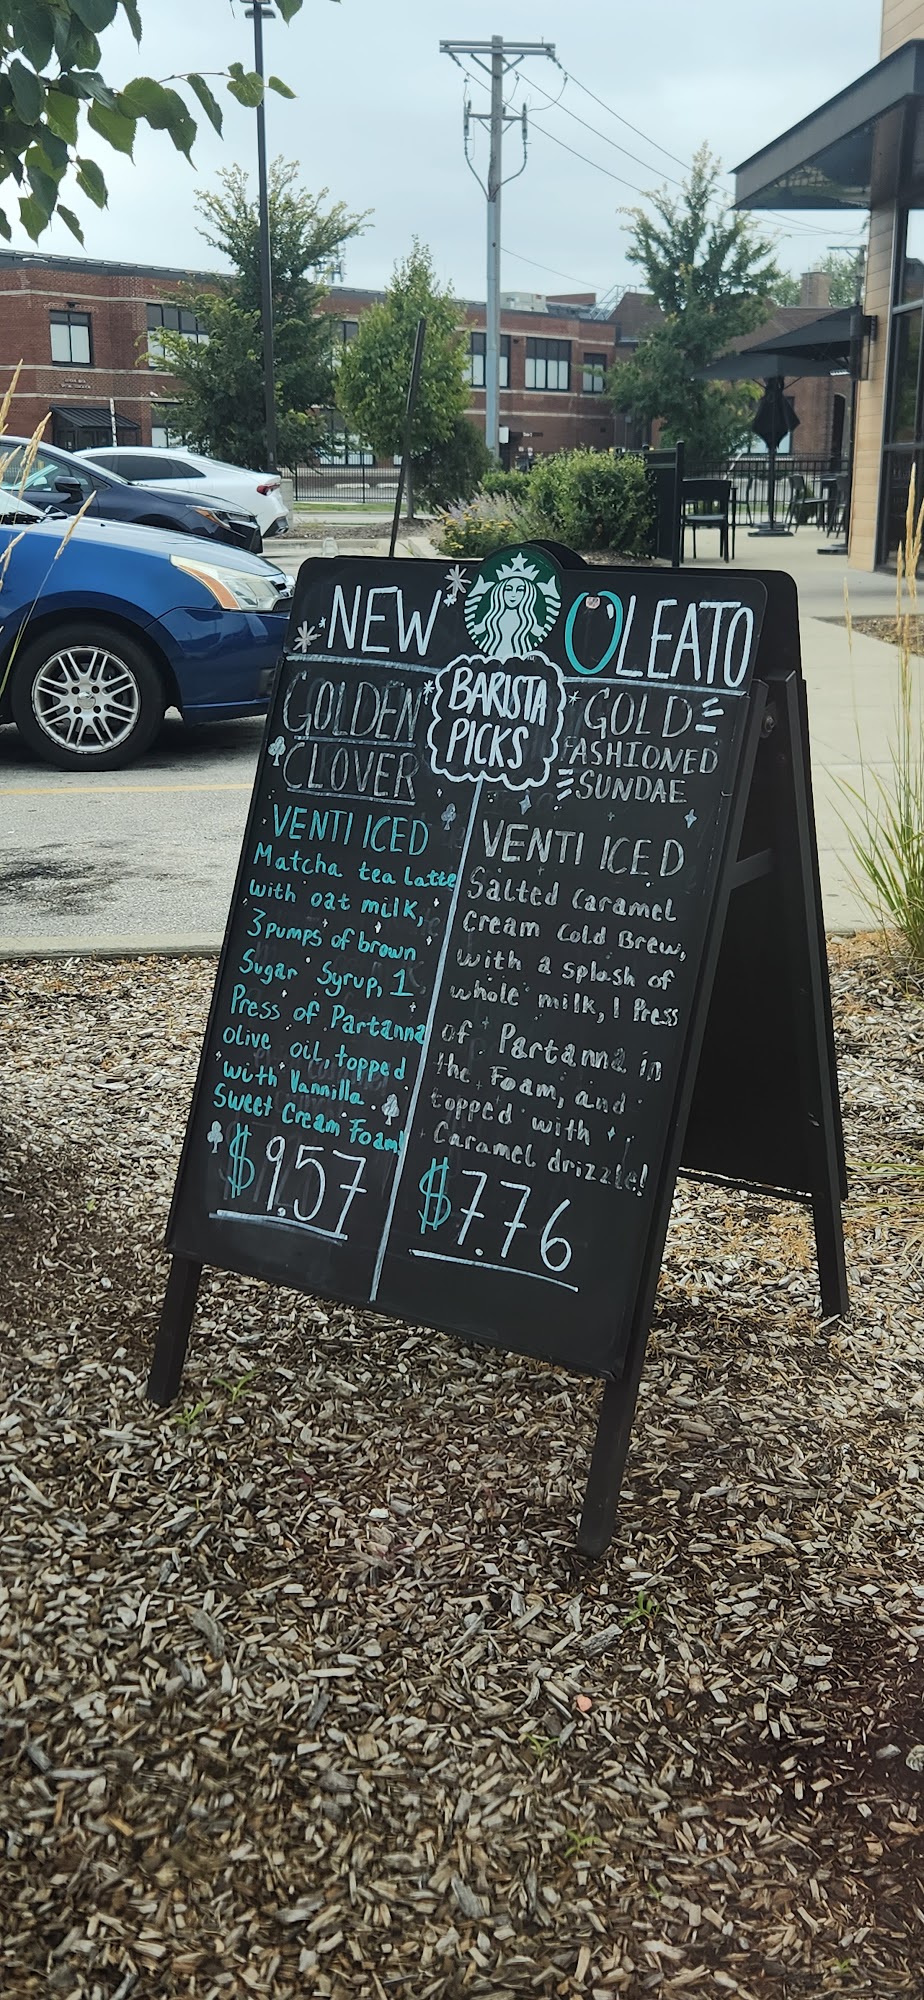 NEW OLEATO
BARISTA
PICKS
GOLDEN
CLOVER
VENTI ICED
Matcha tea latte
with oat milk,
3 pumps of brown
Sugar Syrup, 1
Press of Partanna
olive oil, topped
with Vannilla
Sweet Cream Foam!
$9.57
GOLD
FASHIONED
SUNDAE
VENTI ICED
Salted Caramel
Cream Cold Brew,
with a splash of
whole milk, 1 Press
of Partanna in
the Foam, and
topped with
Caramel drizzle!
$7.76